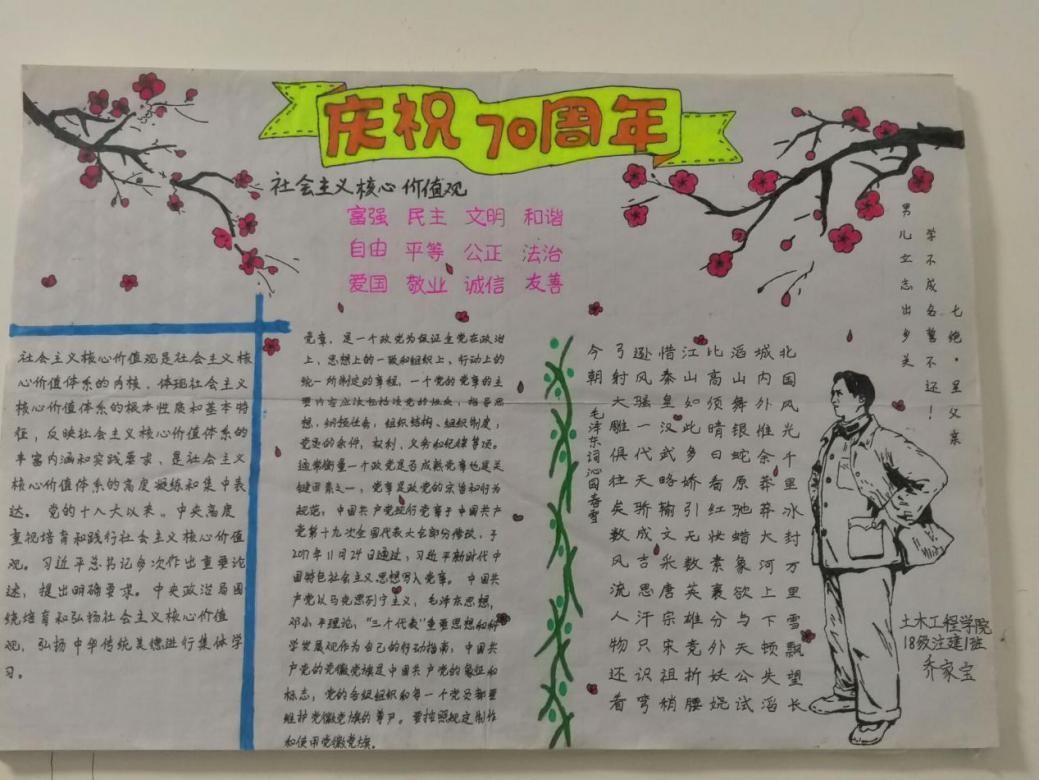 庆祝70周年
社会主义核心价值观
富强 民主 文明 和谐
自由 平等 公正 法治
爱国 敬业 诚信 友善
社会主义核心价值观是社会主义核
心价值体系的内核,体现社会主义
核心价值体系的根本性质和基本特
征,反映社会主义核心价值体系的
丰富内涵和实践要求,是社会主义
核心价值体系的高度凝练和集中表
达。党的十八大以来,中央高度
重视培育和践行社会主义核心价值
观。习近平总书记多次作出重要论
述,提出明确要求。中央政治局围
绕培育和弘扬社会主义核心价值
观,弘扬中华传统美德进行集体学
习。
党章,是一个政党为保证全党在政治
上、思想上的一致和组织上、行动上的
统一所制定的章程。一个党的党章的主
要内容应该包括该党的性质,指导思
想,纲领任务,组织结构、组织制度,
党员的条件,权利,义务和纪律等项。
通常衡量一个政党是否成熟党章也是关
键因素之一,党章是政党的宗旨和行为
规范,中国共产党现行党章于中国共产
党第十九次全国代表大会部分修改,于
2017年11月24日通过,习近平新时代中
国特色社会主义思想写入党章。中国共
产党以马克思列宁主义,毛泽东思想,
邓小平理论,“三个代表”重要思想和科
学发展观作为自己的行动指南,中国共
产党的党徽党旗是中国共产党的象征和
标志,党的各级组织和每一个党员都要
维护党徽党旗的尊严。要按照规定制作
和使用党徽党旗。
北国风光千里冰封万里雪飘望长
城内外惟余莽莽大河上下顿失滔
滔山舞银蛇原驰蜡象欲与天公试
比高须晴日看红妆素裹分外妖娆
江山如此多娇引无数英雄竞折腰
惜秦皇汉武略输文采唐宗宋祖稍
逊风骚一代天骄成吉思汗只识弯
弓射大雕俱往矣数风流人物还看
今朝
毛泽东词沁园春雪
七绝·呈父亲
学不成名誓不还!
男儿立志出乡关
土木工程学院
18级注建1班
乔家宝